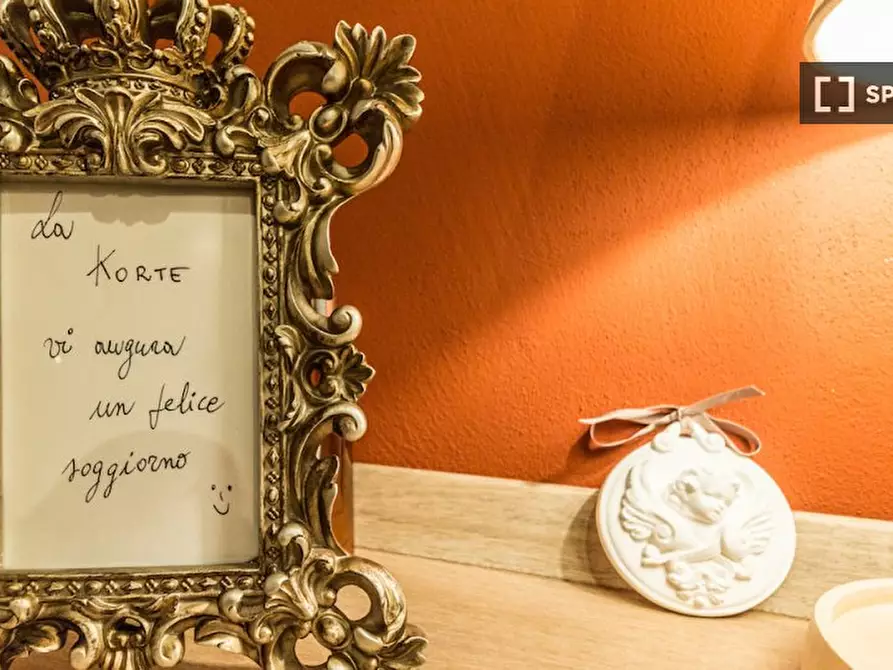 La
KORTE
vi augura
un felice
soggiorno
SP